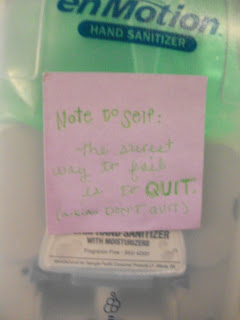 enMotion
HAND SANITIZER
Note to Self:
-the surest
way to fail
is to QUIT.
DON'T QUIT)
HAND SANITIZER
WITH MOISTURIZERS
Fragrance Free